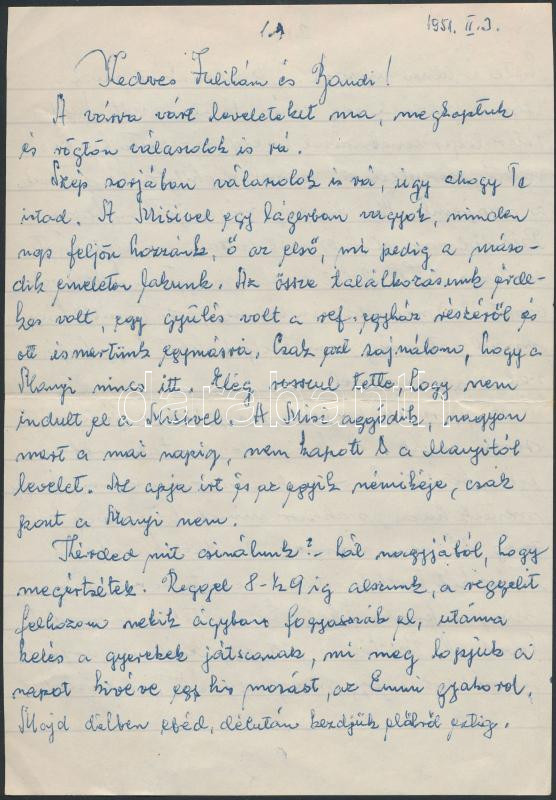 1.
1951. II. 3.
Kedves Julikám és Bandi!
A várva várt leveleteket ma, megkaptuk
és rögtön válaszolok is rá.
Szép sorjában válaszolok is rá, úgy ahogy Te
irtad. A Misivel egy lágerban vagyok, minden
nap feljön hozzánk, ő az első, mi pedig a máso-
dik emeleten lakunk. Az össze találkozásunk érde-
kes volt, egy gyülés volt a ref. egyház részéről és
ott ismertünk egymásra. Csak azt sajnálom, hogy a
Manyi nincs itt. Elég rosszul tette, hogy nem
indult el a Misivel. A Misi aggódik, nagyon
mert a mai napig, nem kapott a Manyitól
levelet. Az apja irt és az egyik nénikéje, csak
pont a Manyi nem.
Kérded mit csinálunk? hát nagyjából, hogy
megértsétek. Reggel 8-½9 ig alszunk, a reggelit
felhozom nekik ágyban fogyasszák el, utánna
kelés a gyerekek játszanak, mi meg lopjuk a
napot kivéve egy kis mosást, az Emmi gyakorol.
Majd délben ebéd, délután kezdjük előlről estig.
darabanth